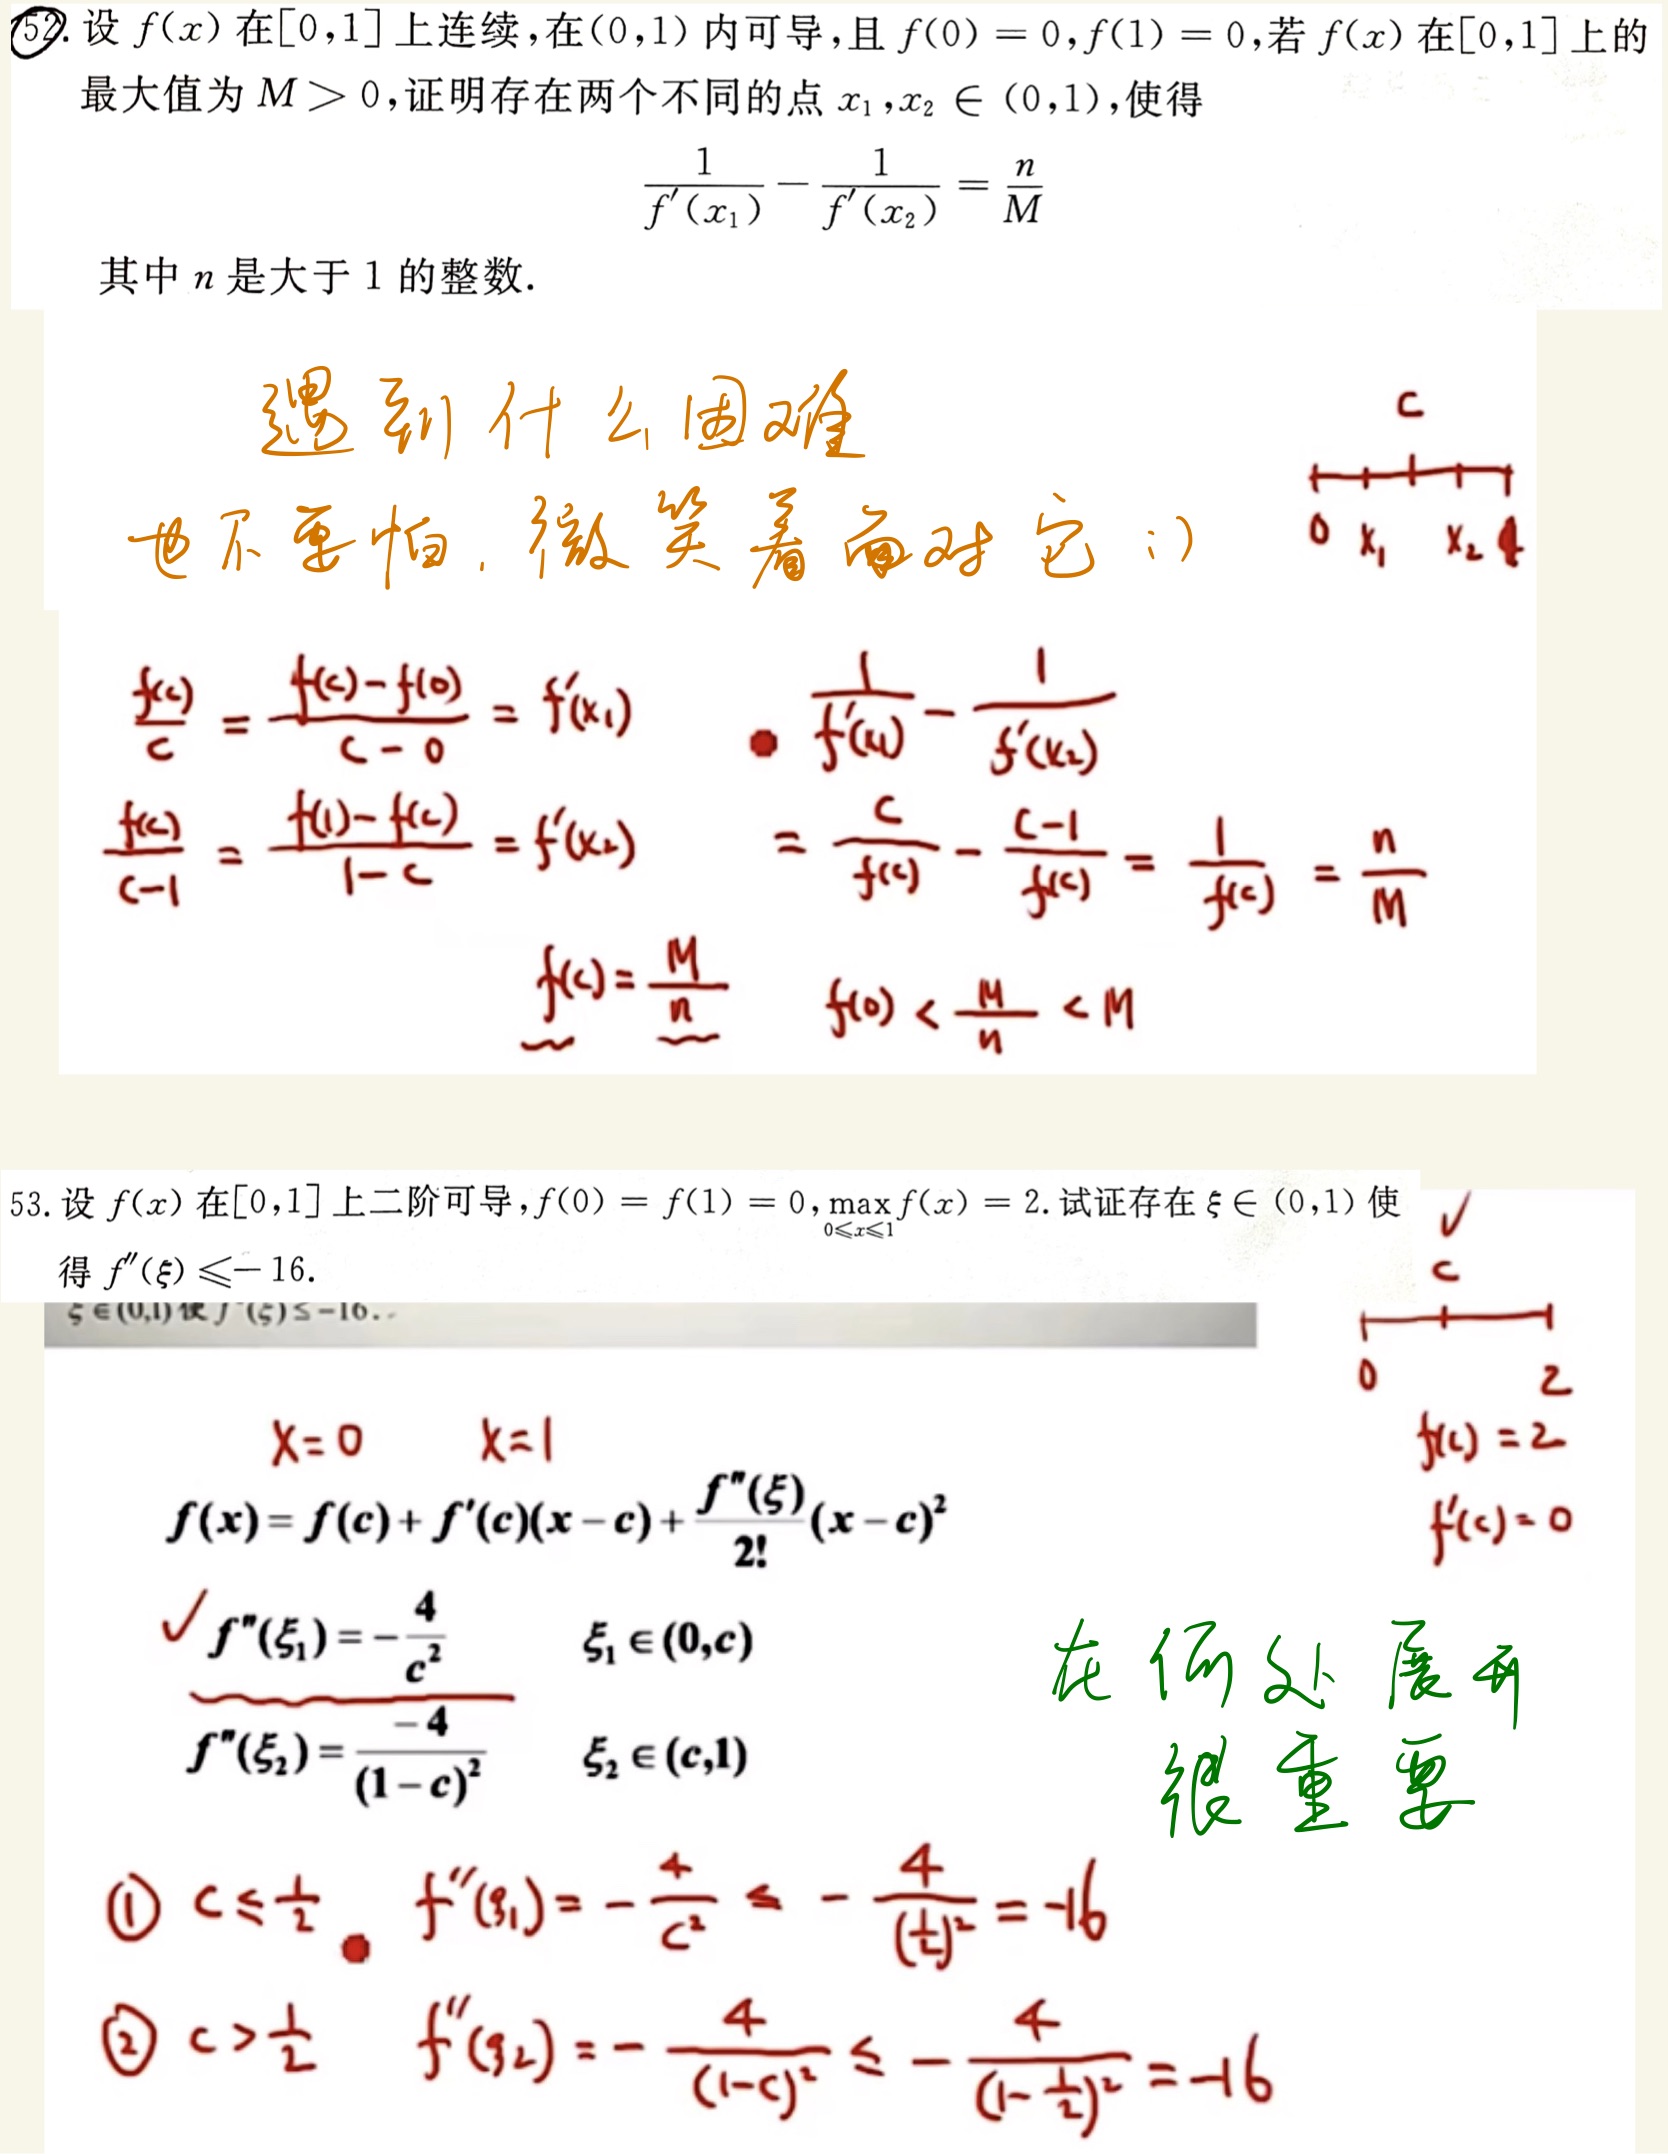 52. 设 f(x) 在[0,1]上连续,在(0,1)内可导,且 f(0) = 0, f(1) = 0,若 f(x) 在[0,1]上的
最大值为 M > 0,证明存在两个不同的点 x₁, x₂ ∈ (0,1),使得
1/f′(x₁) − 1/f′(x₂) = n/M
其中 n 是大于 1 的整数.
遇到什么困难
也不要怕,微笑着面对它 :)
c
0 x₁ x₂ 1
f(c)/c = (f(c)−f(0))/(c−0) = f′(x₁)
1/f′(x₁) − 1/f′(x₂)
f(c)/(c−1) = (f(1)−f(c))/(1−c) = f′(x₂)
= c/f(c) − (c−1)/f(c) = 1/f(c) = n/M
f(c) = M/n f(0) < M/n < M
53. 设 f(x) 在[0,1]上二阶可导, f(0) = f(1) = 0, max f(x) = 2. 试证存在 ξ ∈ (0,1) 使
0≤x≤1
得 f″(ξ) ≤ −16.
ξ∈(0,1) 使 f″(ξ) ≤ −16.
✓
c
0 2
f(c) = 2
f′(c) = 0
x=0 x=1
f(x) = f(c) + f′(c)(x − c) + f″(ξ)/2! (x − c)²
✓ f″(ξ₁) = − 4/c² ξ₁ ∈ (0,c)
f″(ξ₂) = −4/(1−c)² ξ₂ ∈ (c,1)
在何处展开
很重要
① c ≤ 1/2 f″(ξ₁) = − 4/c² ≤ − 4/(1/2)² = −16
② c > 1/2 f″(ξ₂) = − 4/(1−c)² ≤ − 4/(1−1/2)² = −16